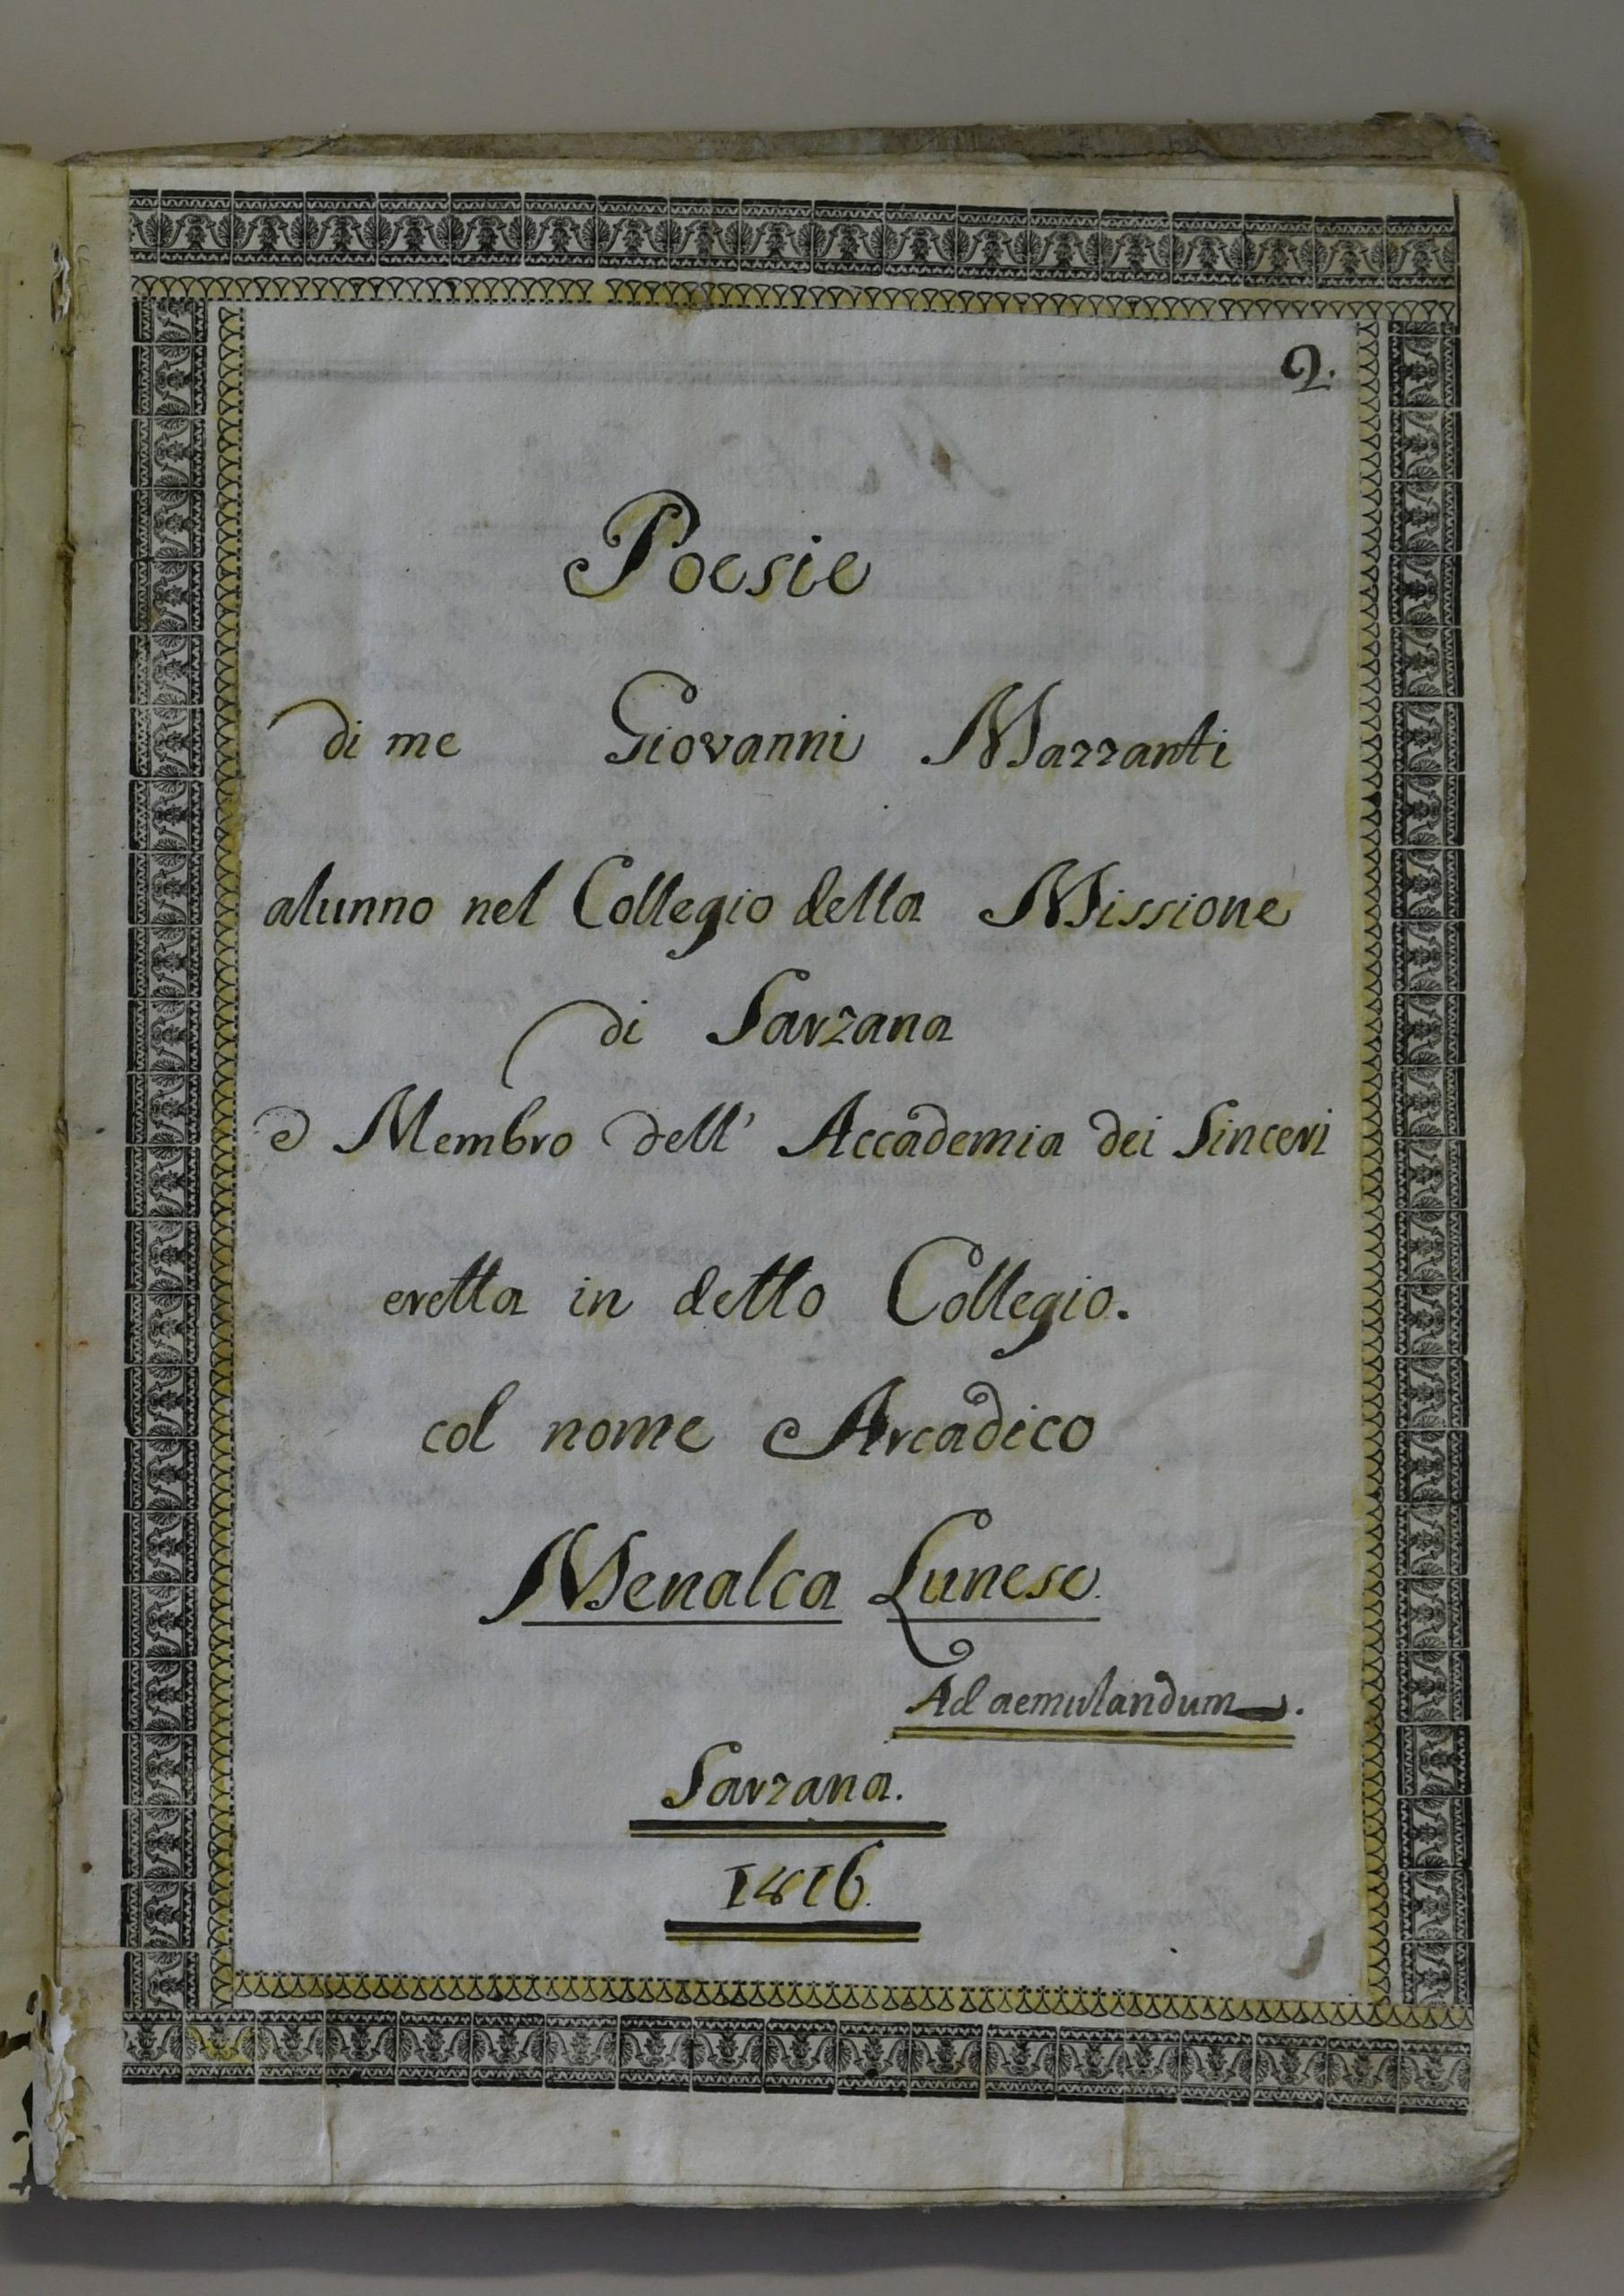 2.
Poesie
di me Giovanni Mazzanti
alunno nel Collegio della Missione
di Sarzana
e Membro dell' Accademia dei Sinceri
eretta in detto Collegio.
col nome Arcadico
Menalca Lunese.
Ad aemulandum.
Sarzana.
1816.